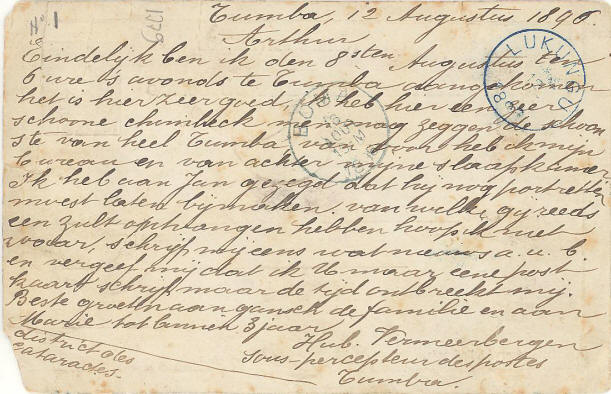 Tumba, 12 Augustus 1896.
N° 1
1779
Arthur
Eindelijk ben ik den 8sten Augustus ten
6 ure s'avonds te Tumba aangekomen
het is hier zeer goed, ik heb hier eene zeer
schoone chimbeck men mag zeggen de schoon
ste van heel Tumba van voor heb ik mijn
Bureau en van achter mijne slaapkamer
Ik heb aan Jan gezegd dat hij nog portretten
moest laten bijmaken. van welke gij reeds
een zult ophangen hebben hoop ik niet
waar, schrijf mij eens wat nieuws a. u. b.
en vergeef mij dat ik U maar eene post
kaart schrijf, maar de tijd ontbreekt mij.
Beste groeten aan gansch de familie en aan
Marie tot binnen 3 jaar,
Hub. Vermeerbergen
sous-percepteur des postes
Tumba.
district des
cataractes
LUKUNGU
BOMA